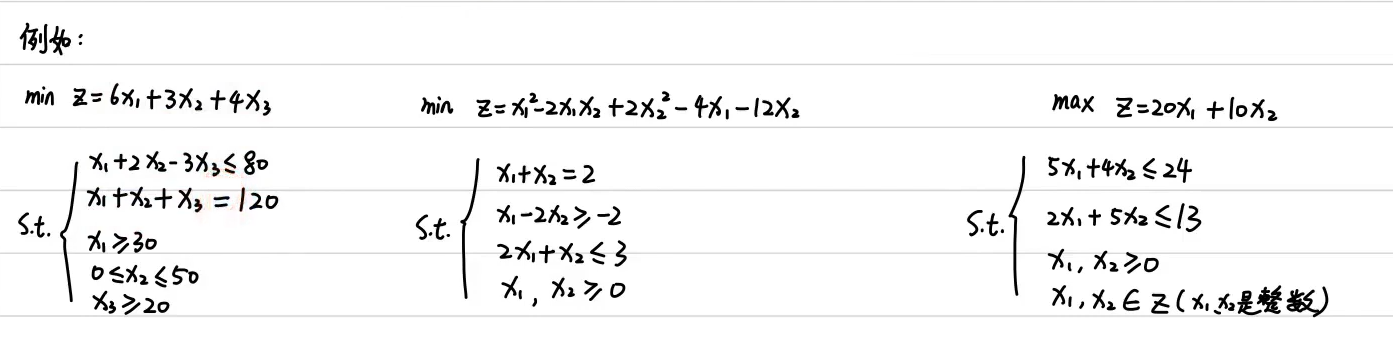 例如:
min z=6x₁+3x₂+4x₃
s.t.
x₁+2x₂-3x₃≤80
x₁+x₂+x₃=120
x₁≥30
0≤x₂≤50
x₃≥20
min z=x₁²-2x₁x₂+2x₂²-4x₁-12x₂
s.t.
x₁+x₂=2
x₁-2x₂≥-2
2x₁+x₂≤3
x₁, x₂≥0
max z=20x₁+10x₂
s.t.
5x₁+4x₂≤24
2x₁+5x₂≤13
x₁, x₂≥0
x₁,x₂∈Z(x₁,x₂是整数)